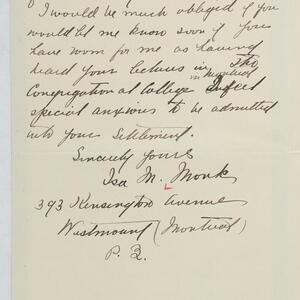 I would be much obliged if you
would let me know soon if you
have room for me as having
heard your lecture in The
in Montreal
Congregational College I feel
special anxious to be admitted
into your Settlement.
Sincerely yours
Isa M. Monk
393 Kensington Avenue
Westmount (Montreal)
P. Q.